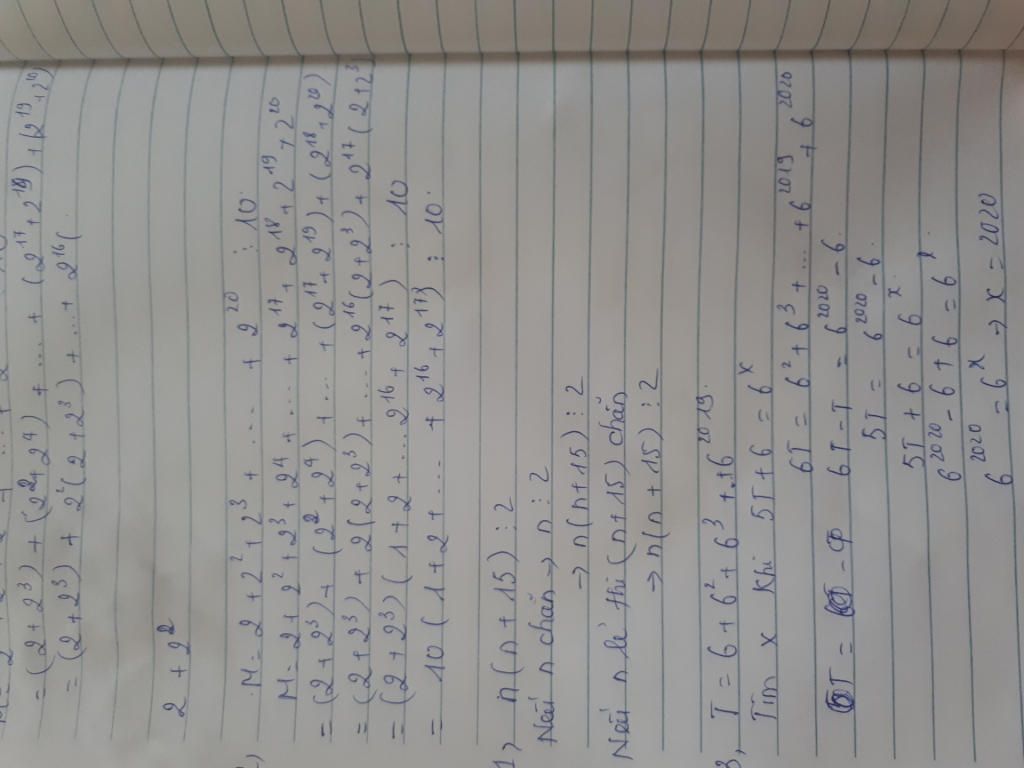 = (2 + 2³) + (2² + 2⁴) + ... + (2¹⁷ + 2¹⁹) + (2¹⁹ + 2²⁰)
= (2 + 2³) + 2²(2 + 2³) + ... + 2¹⁶(
2 + 2²
M = 2 + 2² + 2³ + ... + 2²⁰ ⋮ 10.
M = 2 + 2² + 2³ + 2⁴ + ... + 2¹⁷ + 2¹⁸ + 2¹⁹ + 2²⁰
= (2 + 2³) + (2² + 2⁴) + ... + (2¹⁷ + 2¹⁹) + (2¹⁸ + 2²⁰)
= (2 + 2³) + 2(2 + 2³) + ... + 2¹⁶(2 + 2³) + 2¹⁷(2 + 2³
= (2 + 2³)(1 + 2 + ... 2¹⁶ + 2¹⁷) ⋮ 10
= 10(1 + 2 + ... + 2¹⁶ + 2¹⁷) ⋮ 10.
1, n(n + 15) ⋮ 2
Nếu n chẵn → n ⋮ 2
→ n(n + 15) ⋮ 2
Nếu n lẻ thì (n + 15) chẵn
→ n(n + 15) ⋮ 2
3, T = 6 + 6² + 6³ + ... + 6²⁰¹⁹.
Tìm x khi 5T + 6 = 6ˣ
6T = 6² + 6³ + ... + 6²⁰¹⁹ + 6²⁰²⁰
6T - T = 6²⁰²⁰ - 6.
5T = 6²⁰²⁰ - 6.
5T + 6 = 6ˣ
6²⁰²⁰ - 6 + 6 = 6ˣ
6²⁰²⁰ = 6ˣ → x = 2020